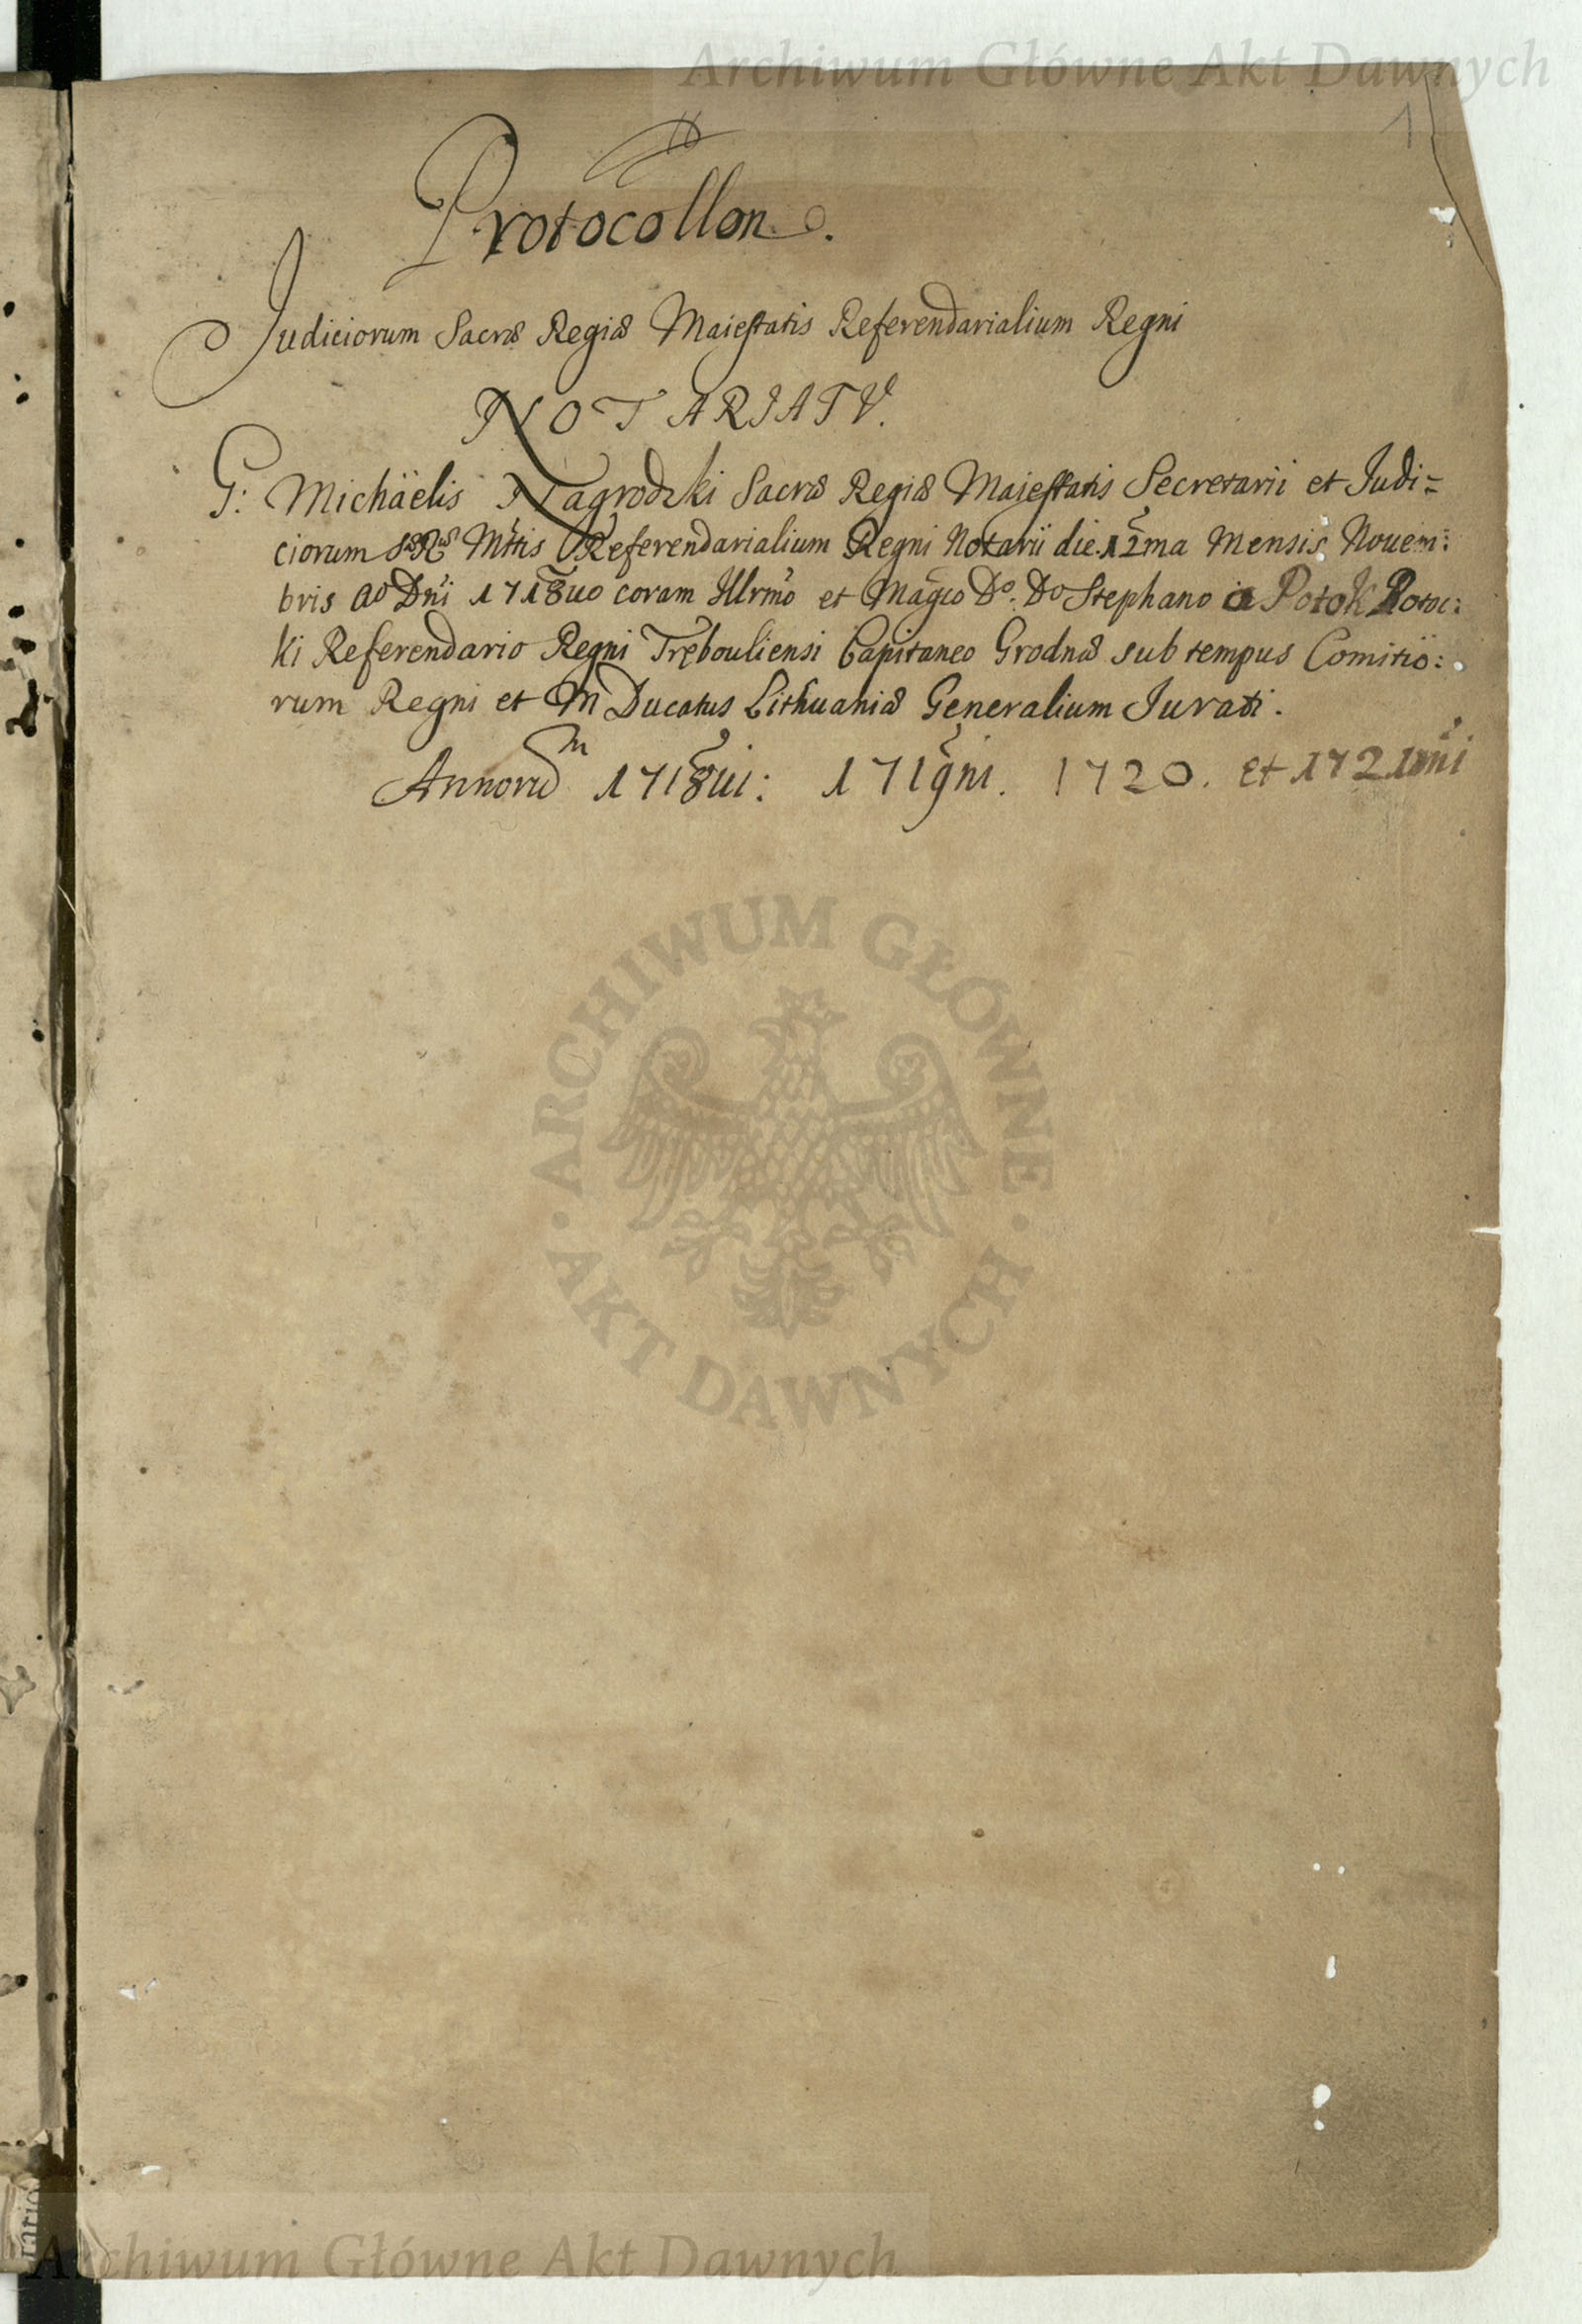 Archiwum Główne Akt Dawnych
1
Protocollon.
Judiciorum Sacræ Regiæ Maiestatis Referendarialium Regni
NOTARIATV.
G: Michäelis Nagrodzki Sacræ Regiæ Maiestatis Secretarii et Judi=
ciorum Sæ Ræ Mttis Referendarialium Regni Notarii die 12ma Mensis Nouem:
bris Ao Dni 1718uo coram Illrmo et Magco Do. Do Stephano a Potok Potoc:
ki Referendario Regni Trębouliensi Capitaneo Grodnæ sub tempus Comitio:
rum Regni et M Ducatus Lithuaniæ Generalium Jurati.
Annorum 1718ui: 1719ni. 1720. et 1721mi
ARCHIWUM GŁÓWNE
AKT DAWNYCH
Archiwum Główne Akt Dawnych